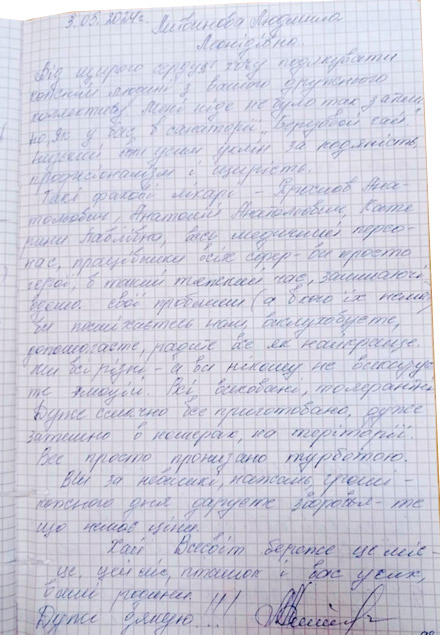 3.05.2024г. Литвинова Людмила
Леонідівна.
Від щирого серця хочу подякувати
кожній людині з вашого дружного
колективу. Мені ніде не було так затиш
но, як у вас в санаторії „Березовий гай"
Низький всім уклін за людяність,
професіоналізм і щирість.
Такі фахові лікарі – Ана-
толійович, Анатолій Анатолійович, Кате
рина Павлівна, весь медичний персо-
нал, працівники всіх сфер – ви просто
герої, в такий тяжкий час, залишаючи
вдома свої проблеми (а в кого їх нема)
ви посміхаєтесь нам, вислуховуєте,
допомагаєте, радите все як найкраще.
Ми всі різні – а ви нікому не
те емоцій. Всі виховані, толерантні.
Дуже смачно все приготовано, дуже
затишно в номерах, на території.
Все просто пронизано турботою.
Ви за невеликі, нажаль, гроші –
кожного дня даруєте здоров'я – те
що немає ціни.
Хай Всесвіт береже це міс-
це, цей ліс, пташок і вас усіх,
ваші родини.
Дуже дякую!!!